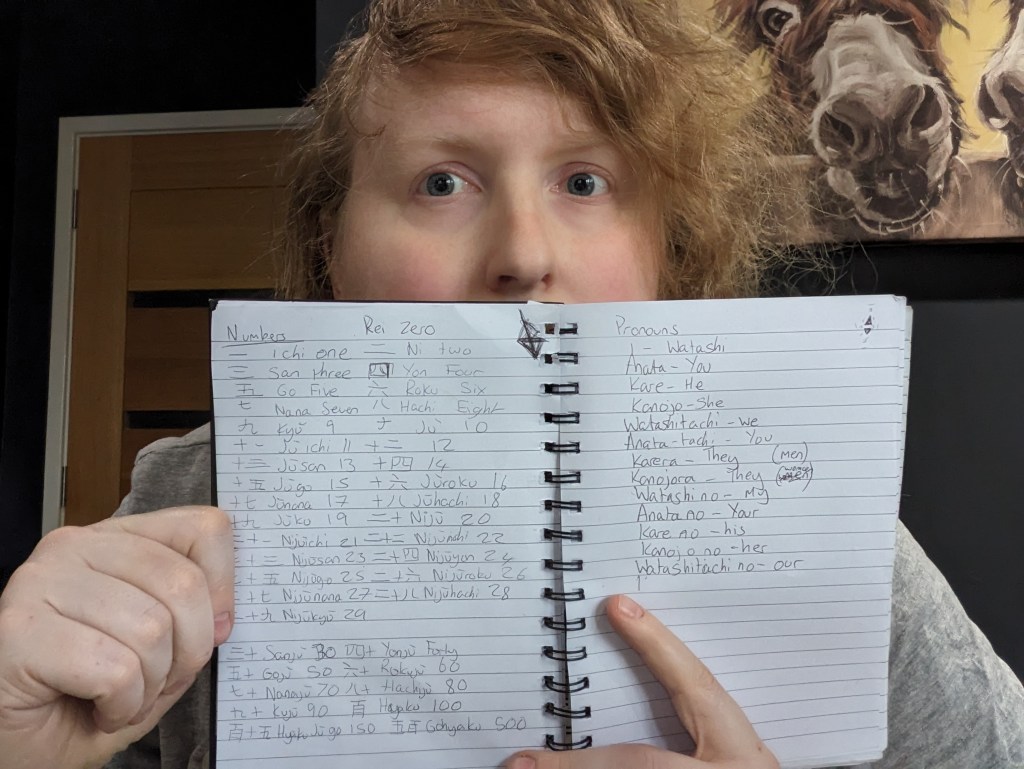 Numbers Rei Zero
一 ichi one 二 Ni two
三 San three 四 Yon Four
五 Go Five 六 Roku Six
七 Nana Seven 八 Hachi Eight
九 Kyū 9 十 Jū 10
十一 Jū ichi 11 十二 12
十三 Jūsan 13 十四 14
十五 Jūgo 15 十六 Jūroku 16
十七 Jūnana 17 十八 Jūhachi 18
十九 Jūku 19 二十 Nijū 20
二十一 Nijūichi 21 二十二 22
二十三 Nijūsan 23 二十四 Nijūyon 24
二十五 Nijūgo 25 二十六 Nijūroku 26
二十七 Nijūnana 27 二十八 Nijūhachi 28
二十九 Nijūkyū 29
三十 Sanjū 30 四十 Yonjū Forty
五十 Gojū 50 六十 Rokujū 60
七十 Nanajū 70 八十 Hachijū 80
九十 Kyū 90 百 Hayaku 100
百十五 Jūgo 150 五百 Gohyaku 500
Pronouns
I - Watashi
Anata - You
Kare - He
Kanojo - She
Watashitachi - We
Anata-tachi - You
Karera - They (Men)
Konojora - They
Watashi no - My
Anata no - Your
Kare no - his
Kanojo no - her
Watashitachi no - our